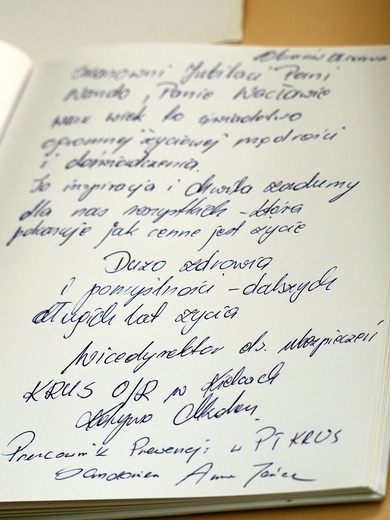 Szanowni Jubilaci Pani
Wando, Panie Wacławie
wasz wiek to świadectwo
ogromnej życiowej mądrości
i doświadczenia.
To inspiracja i chwila zadumy
dla nas wszystkich - która
pokazuje jak cenne jest życie
Dużo zdrowia
i pomyślności - dalszych
długich lat życia
Wicedyrektor ds. ubezpieczeń
KRUS O/R w Kielcach
Pracownik Prewencji w PT KRUS
Anna